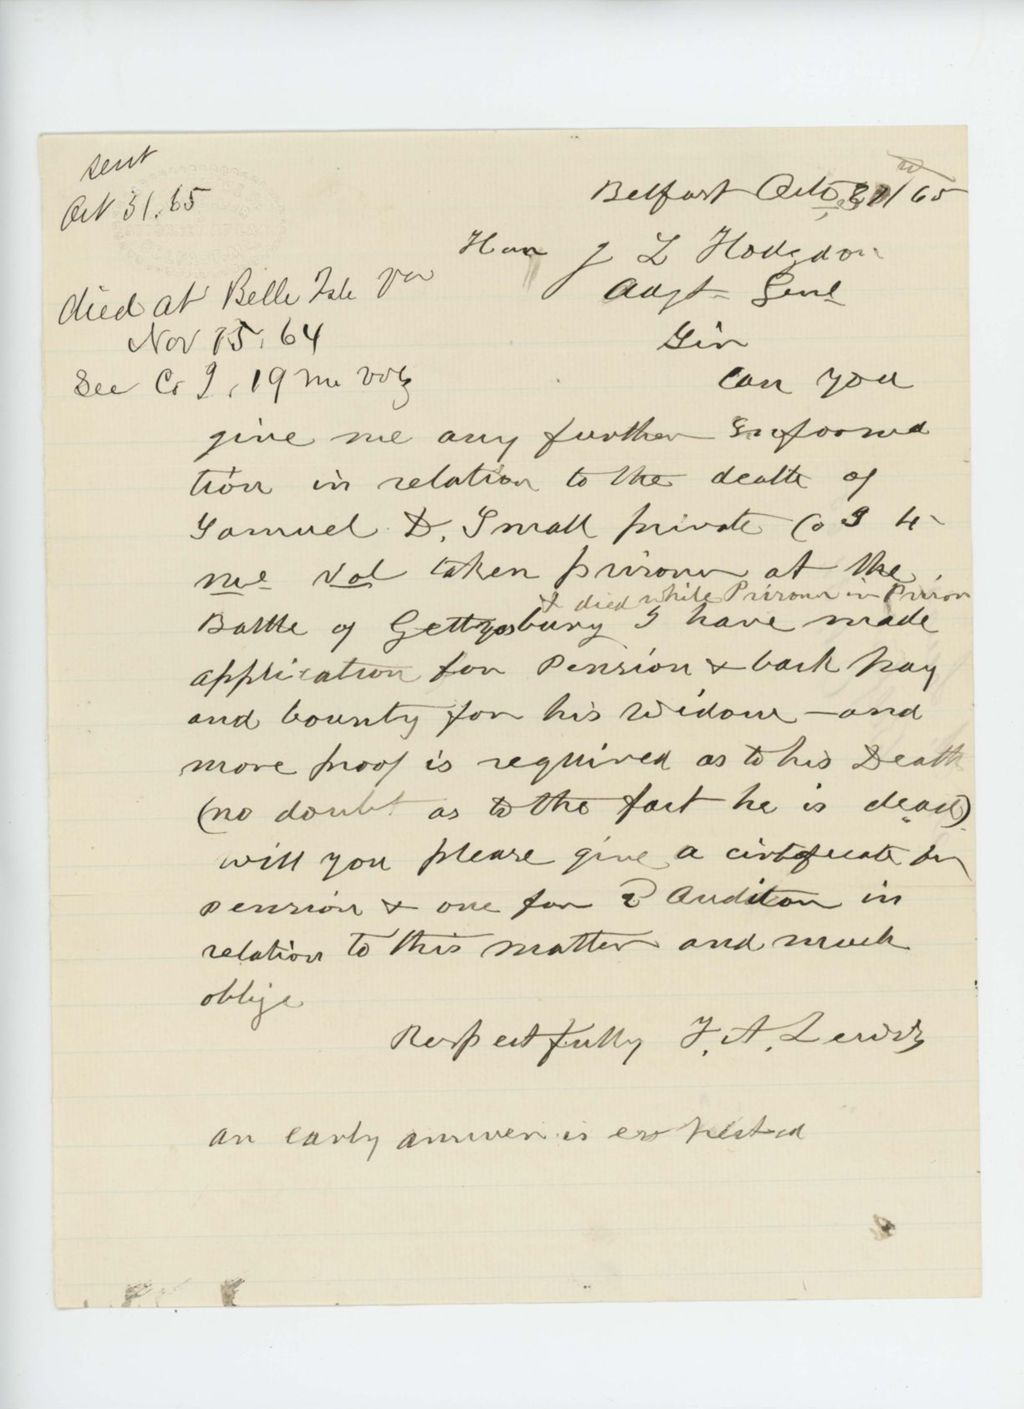 sent
Oct 31.65
died at Belle Isle Va
Nov 15, 64
See Co I, 19 Me Vols
Belfast Oct 31/65
Hon J L Hodgdon
Adgt Genl
Sir
Can you
give me any further Informa
tion in relation to the death of
Samuel D. Small private Co I 4
me Vol taken prisoner at the
& died while Prisoner in Prison
Battle of Gettysburg I have made
application for Pension & back pay
and bounty for his Widow - and
more proof is required as to his Death
(no doubt as to the fact he is dead)
will you please give a certificate for
pension & one for 2 Auditor in
relation to this matter and much
oblige
Respectfully F. A. Lewis
an early answer is expected